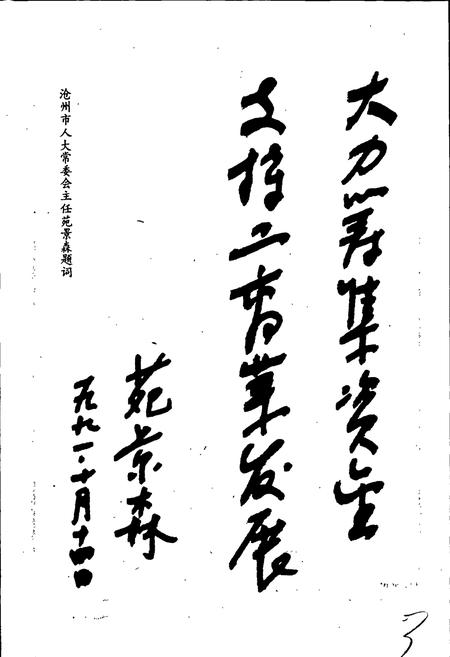 大力筹集资金
支持工商业发展
苑景森
一九九一.十月十四日
沧州市人大常委会主任苑景森题词